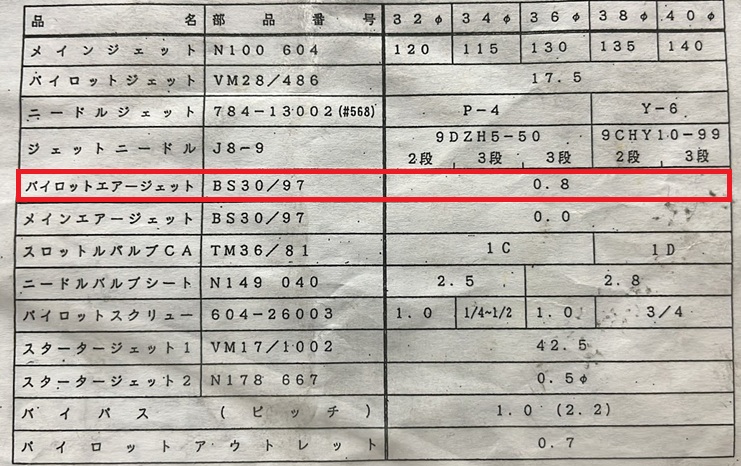 品名 部品番号 32φ 34φ 36φ 38φ 40φ
メインジェット N100 604 120 115 130 135 140
パイロットジェット VM28/486 17.5
ニードルジェット 784-13002(#568) P-4 Y-6
ジェットニードル J8-9 9DZH5-50 9CHY10-99
2段 3段 3段 2段 3段
パイロットエアージェット BS30/97 0.8
メインエアージェット BS30/97 0.0
スロットルバルブCA TM36/81 1C 1D
ニードルバルブシート N149 040 2.5 2.8
パイロットスクリュー 604-26003 1.0 1/4~1/2 1.0 3/4
スタータージェット1 VM17/1002 42.5
スタータージェット2 N178 667 0.5φ
バイパス (ピッチ) 1.0 (2.2)
パイロットアウトレット 0.7